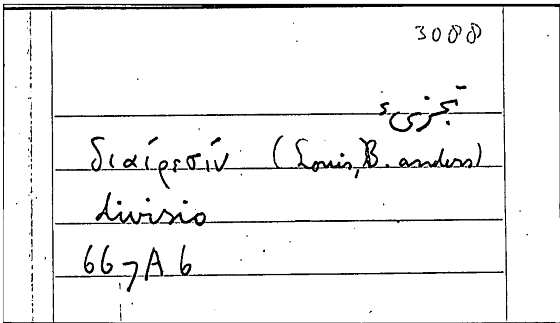 3088
تجزىء
διαίρεσιν (Louis, B. anders)
divisio
667A6